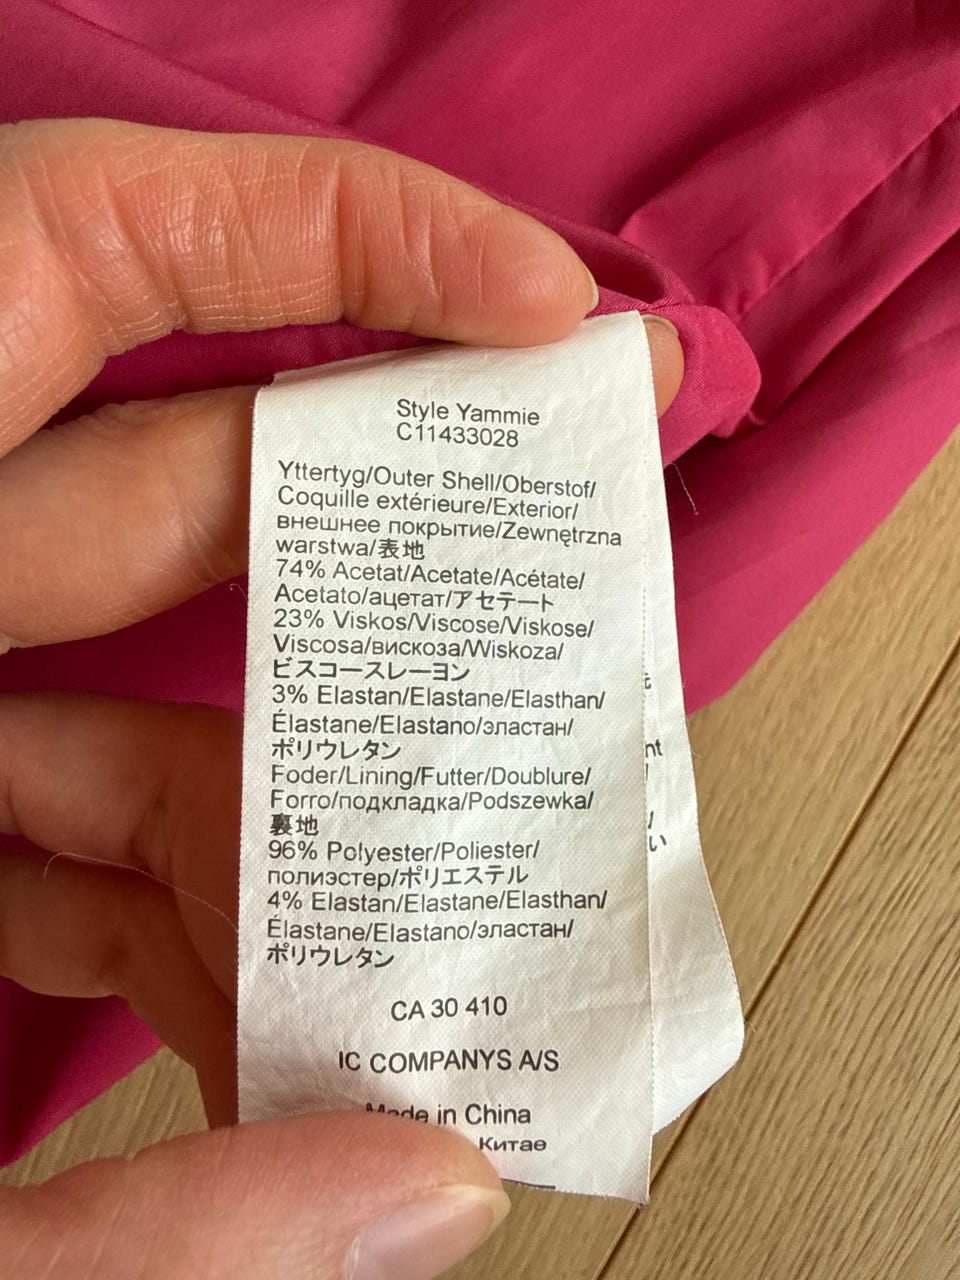 Style Yammie
C11433028
Yttertyg/Outer Shell/Oberstof/
Coquille extérieure/Exterior/
внешнее покрытие/Zewnętrzna
warstwa/表地
74% Acetat/Acetate/Acétate/
Acetato/ацетат/アセテート
23% Viskos/Viscose/Viskose/
Viscosa/вискоза/Wiskoza/
ビスコースレーヨン
3% Elastan/Elastane/Elasthan/
Élastane/Elastano/эластан/
ポリウレタン
Foder/Lining/Futter/Doublure/
Forro/подкладка/Podszewka/
裏地
96% Polyester/Poliester/
полиэстер/ポリエステル
4% Elastan/Elastane/Elasthan/
Élastane/Elastano/эластан/
ポリウレタン
CA 30 410
IC COMPANYS A/S
Made in China
Китае